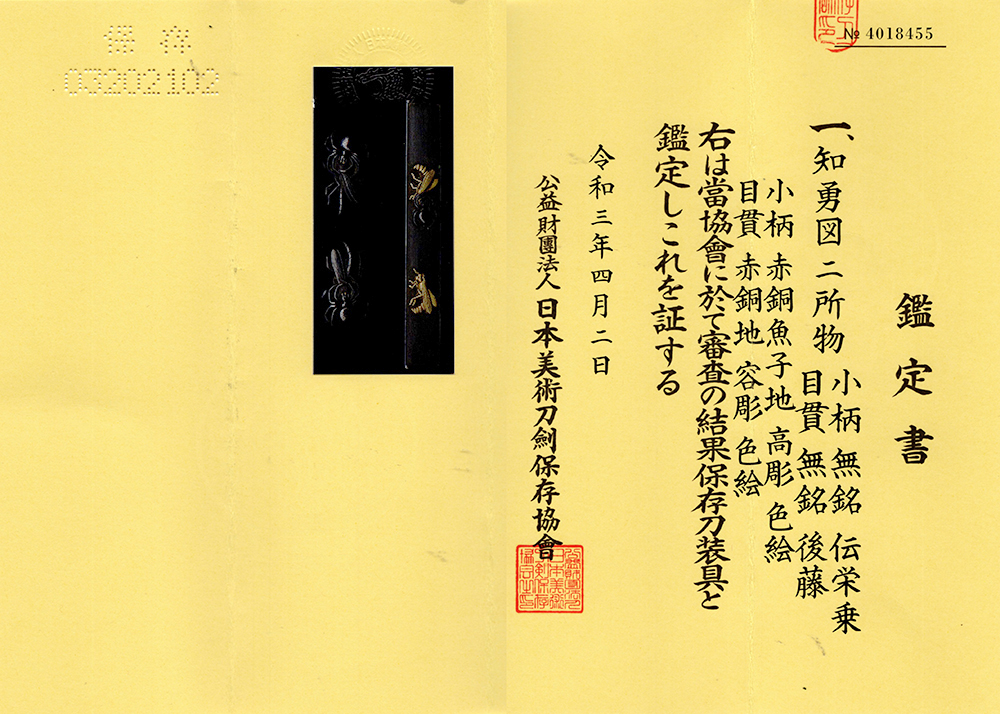 № 4018455
鑑定書
一、知勇図 二所物 小柄 無銘 伝栄乗
目貫 無銘 後藤
小柄 赤銅魚子地 高彫 色絵
目貫 赤銅地 容彫 色絵
右は當協會に於て審査の結果保存刀装具と
鑑定しこれを証する
令和三年四月二日
公益財團法人 日本美術刀劍保存協會
保存
03202102